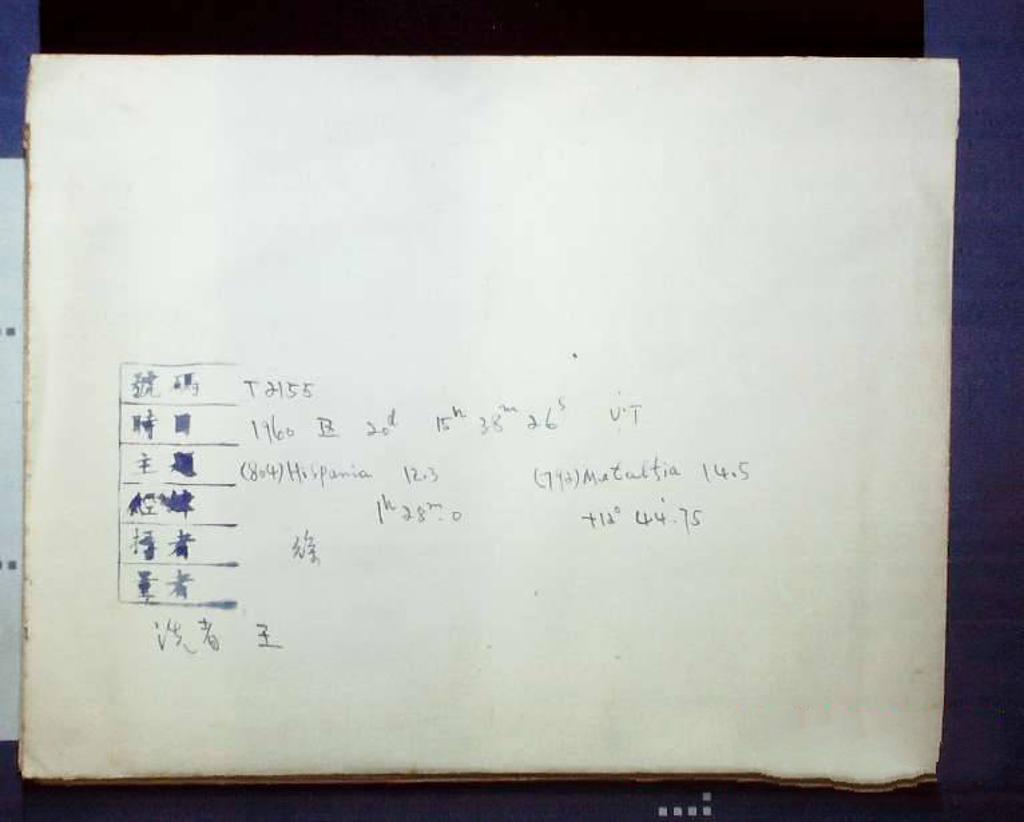 號碼 T 2155
時日 1960 IX 20ᵈ 15ʰ 38ᵐ 26ˢ U.T
主題 (804) Hispania 12.3 (792) Metcalfia 14.5
經緯 1ʰ 28ᵐ.0 +12° 44'.75
攝者 徐
量者
洗者 王